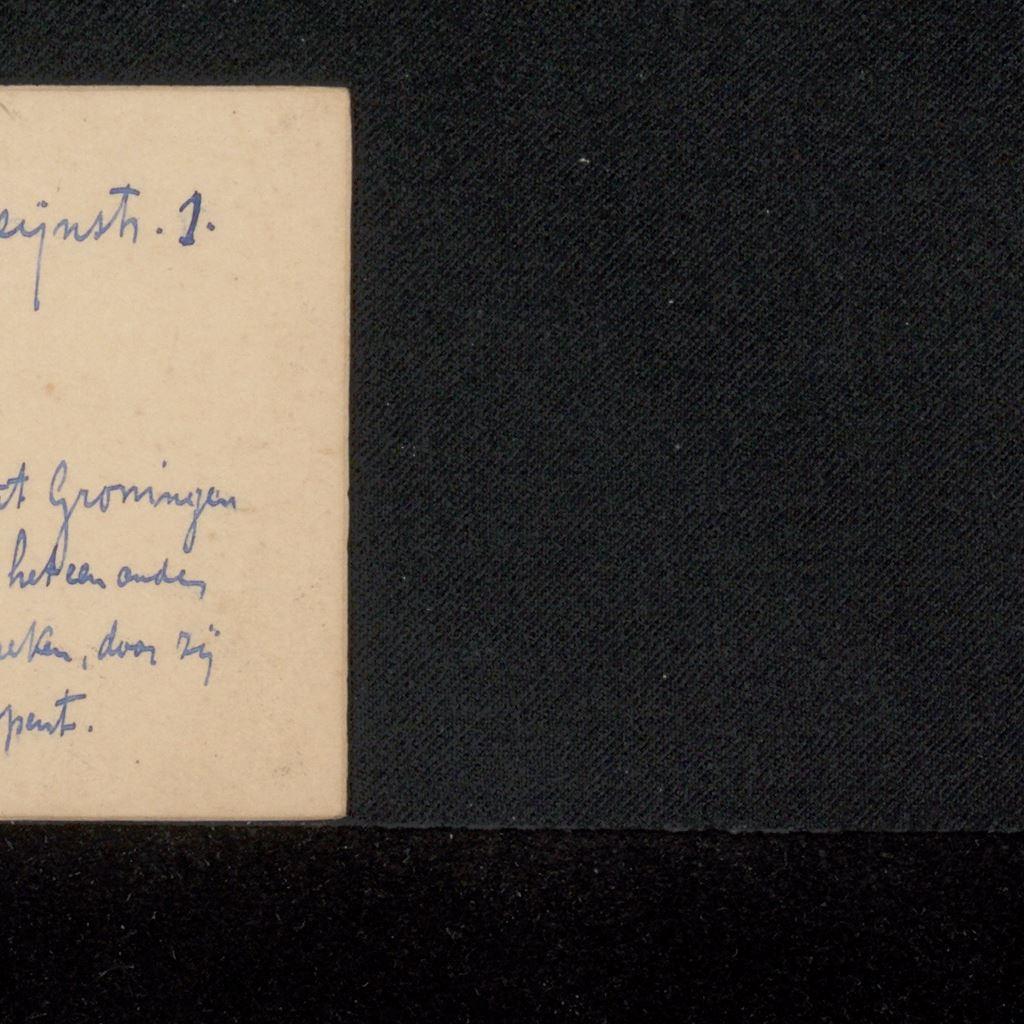 eijnstr. 1.
t Groningen
het een ander
eken, door zij
pent.